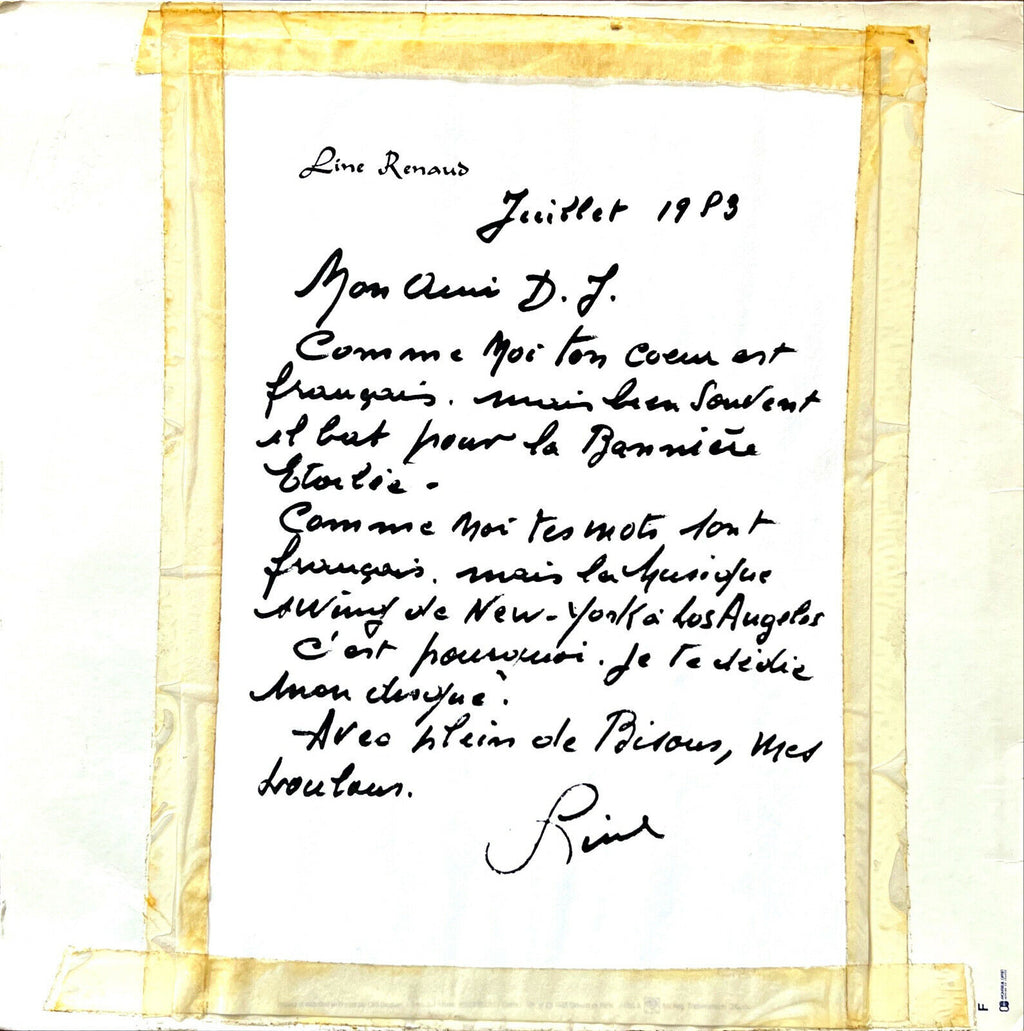 Line Renaud
Juillet 1983
Mon Ami D.J.
Comme Moi ton coeur est
français. mais bien Souvent
il bat pour la Bannière
Etoilée -
Comme Moi tes mots sont
français. mais la Musique
swing de New-York à Los Angeles
C'est pourquoi. Je te dédie
mon disque.
Avec plein de Bisous, mes
loulous.
Line
F